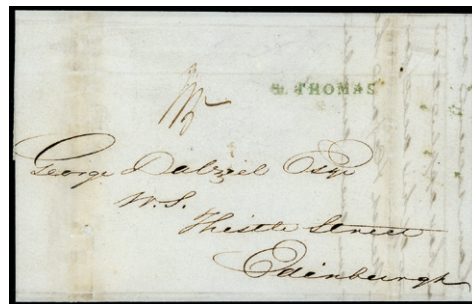 St. THOMAS
George Dalziel Esqr
W.S.
Thistle Street
Edinburgh